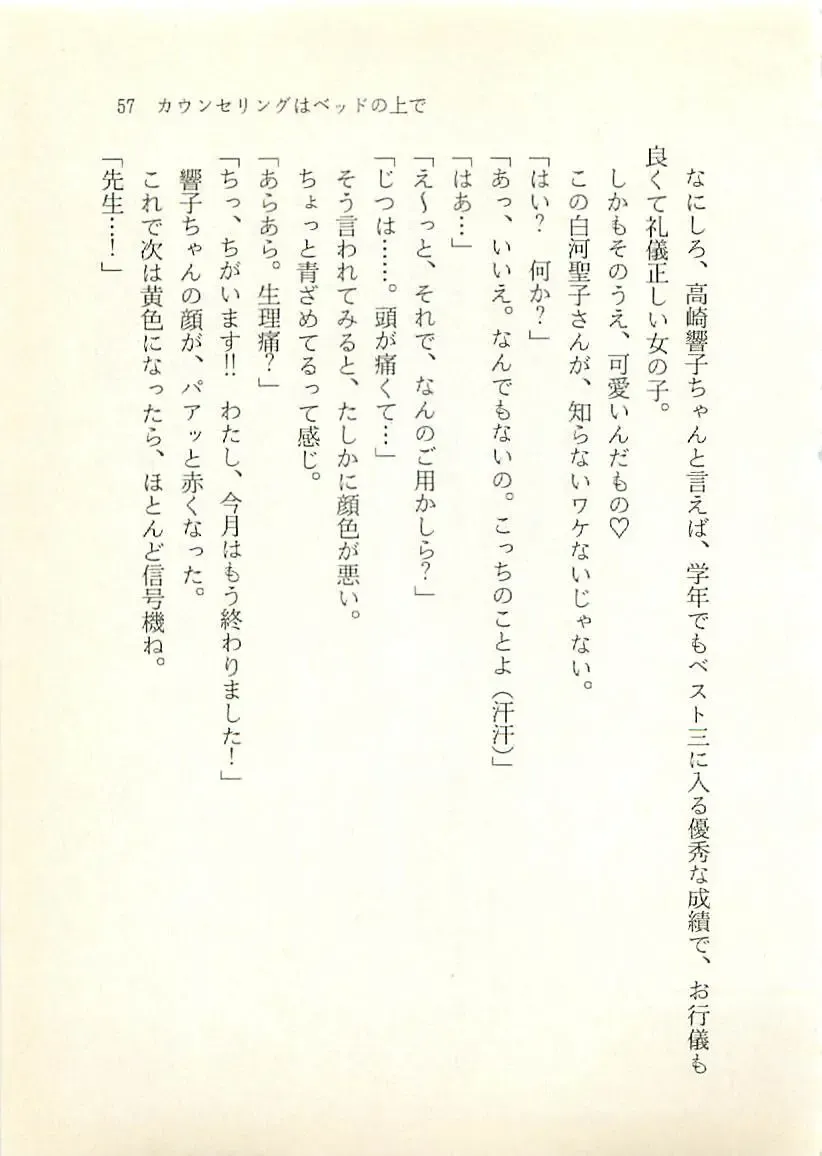 57 カウンセリングはベッドの上で
なにしろ、高崎響子ちゃんと言えば、学年でもベスト三に入る優秀な成績で、お行儀も
良くて礼儀正しい女の子。
しかもそのうえ、可愛いんだもの♡
この白河聖子さんが、知らないワケないじゃない。
「はい？　何か？」
「あっ、いいえ。なんでもないの。こっちのことよ（汗汗）」
「はあ…」
「え〜っと、それで、なんのご用かしら？」
「じつは……。頭が痛くて…」
そう言われてみると、たしかに顔色が悪い。
ちょっと青ざめてるって感じ。
「あらあら。生理痛？」
「ちっ、ちがいます!!　わたし、今月はもう終わりました！」
響子ちゃんの顔が、パアッと赤くなった。
これで次は黄色になったら、ほとんど信号機ね。
「先生…！」